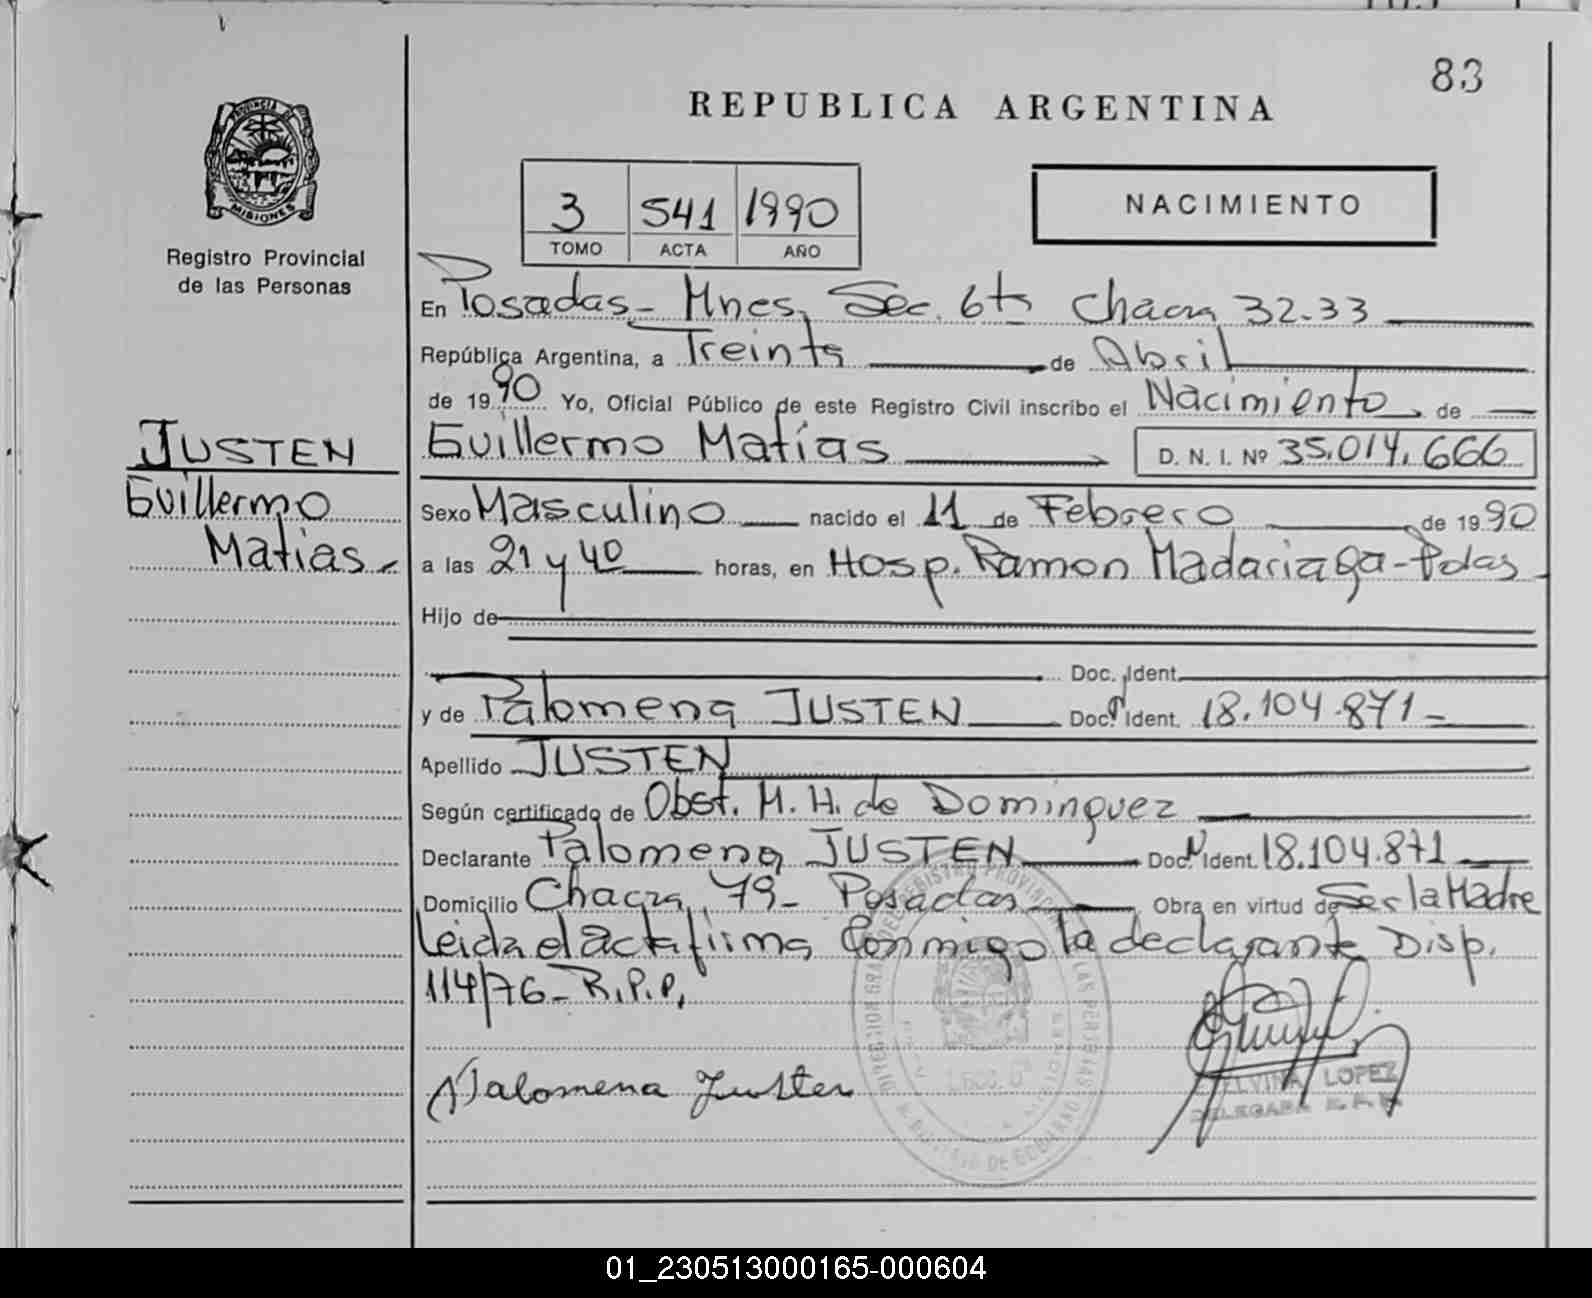 83
REPUBLICA ARGENTINA
PROVINCIA DE
MISIONES
Registro Provincial
de las Personas
3 541 1990
TOMO ACTA AÑO
NACIMIENTO
En Posadas - Mnes, Sec. 6ta Chacra 32-33
República Argentina, a Treinta de Abril
de 1990 Yo, Oficial Público de este Registro Civil inscribo el Nacimiento de
JUSTEN
Guillermo
Matias
Guillermo Matías D. N. I. Nº 35.014.666
Sexo Masculino nacido el 11 de Febrero de 1990
a las 21 y 40 horas, en Hosp. Ramon Madariaga - Pdas
Hijo de
Doc. Ident.
y de Palomena JUSTEN Doc. Ident. 18.104.871 -
Apellido JUSTEN
Según certificado de Obst. M. H. de Dominguez
Declarante Palomena JUSTEN Doc. Ident. 18.104.871
Domicilio Chacra 79 - Posadas Obra en virtud de Ser la Madre
Leida el acta firma conmigo la declarante Disp.
114/76 - R.P.P.
Palomena Justen
DIRECCION GRAL DEL REGISTRO PROVINCIAL DE LAS PERSONAS
MISIONES
DE GOBIERNO
ELVINA LOPEZ
DELEGADA R. P. P.
01_230513000165-000604